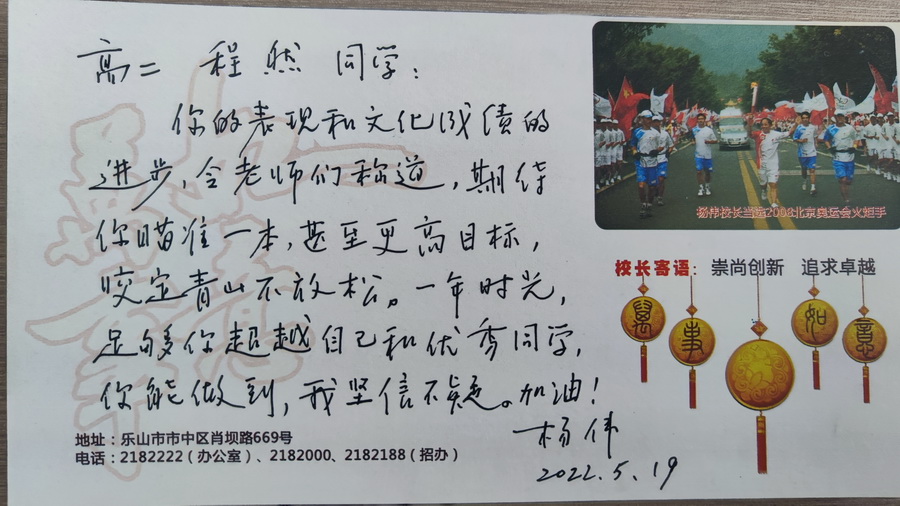 高二 程然 同学：
你的表现和文化成绩的
进步，令老师们称道，期待
你瞄准一本，甚至更高目标，
咬定青山不放松。一年时光，
足够你超越自己和优秀同学，
你能做到，我坚信不疑。加油！
杨伟
2022.5.19
地址：乐山市市中区肖坝路669号
电话：2182222（办公室）、2182000、2182188（招办）
杨伟校长当选2008北京奥运会火炬手
校长寄语：崇尚创新 追求卓越
万事如意